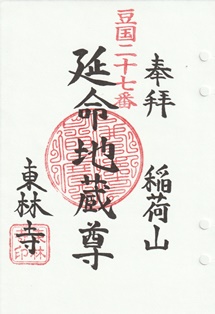 奉拝
稲荷山
豆国二十七番
延命地蔵尊
東林寺